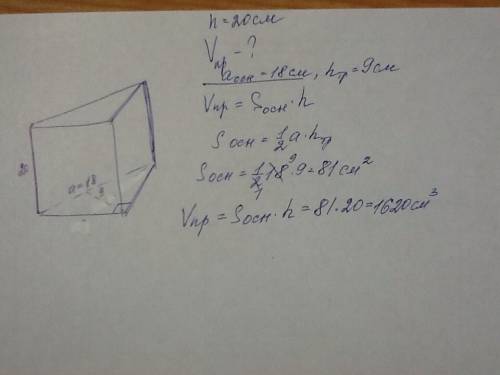 h=20см
Vпр - ?
aосн = 18 см, hтр = 9 см
Vпр = Sосн · h
S осн = 1/2 a · hтр
Sосн = 1/2 18 9 · 9 = 81 см²
1
Vпр = Sосн · h = 81 · 20 = 1620 см³
20
a=18
9